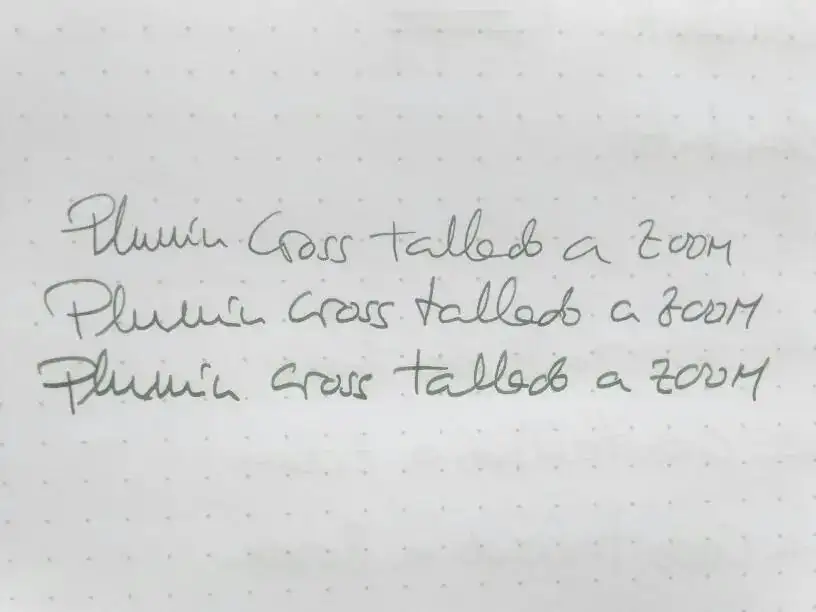 Plumin Cross tallado a ZOOM
Plumin Cross tallado a ZOOM
Plumin Cross tallado a ZOOM